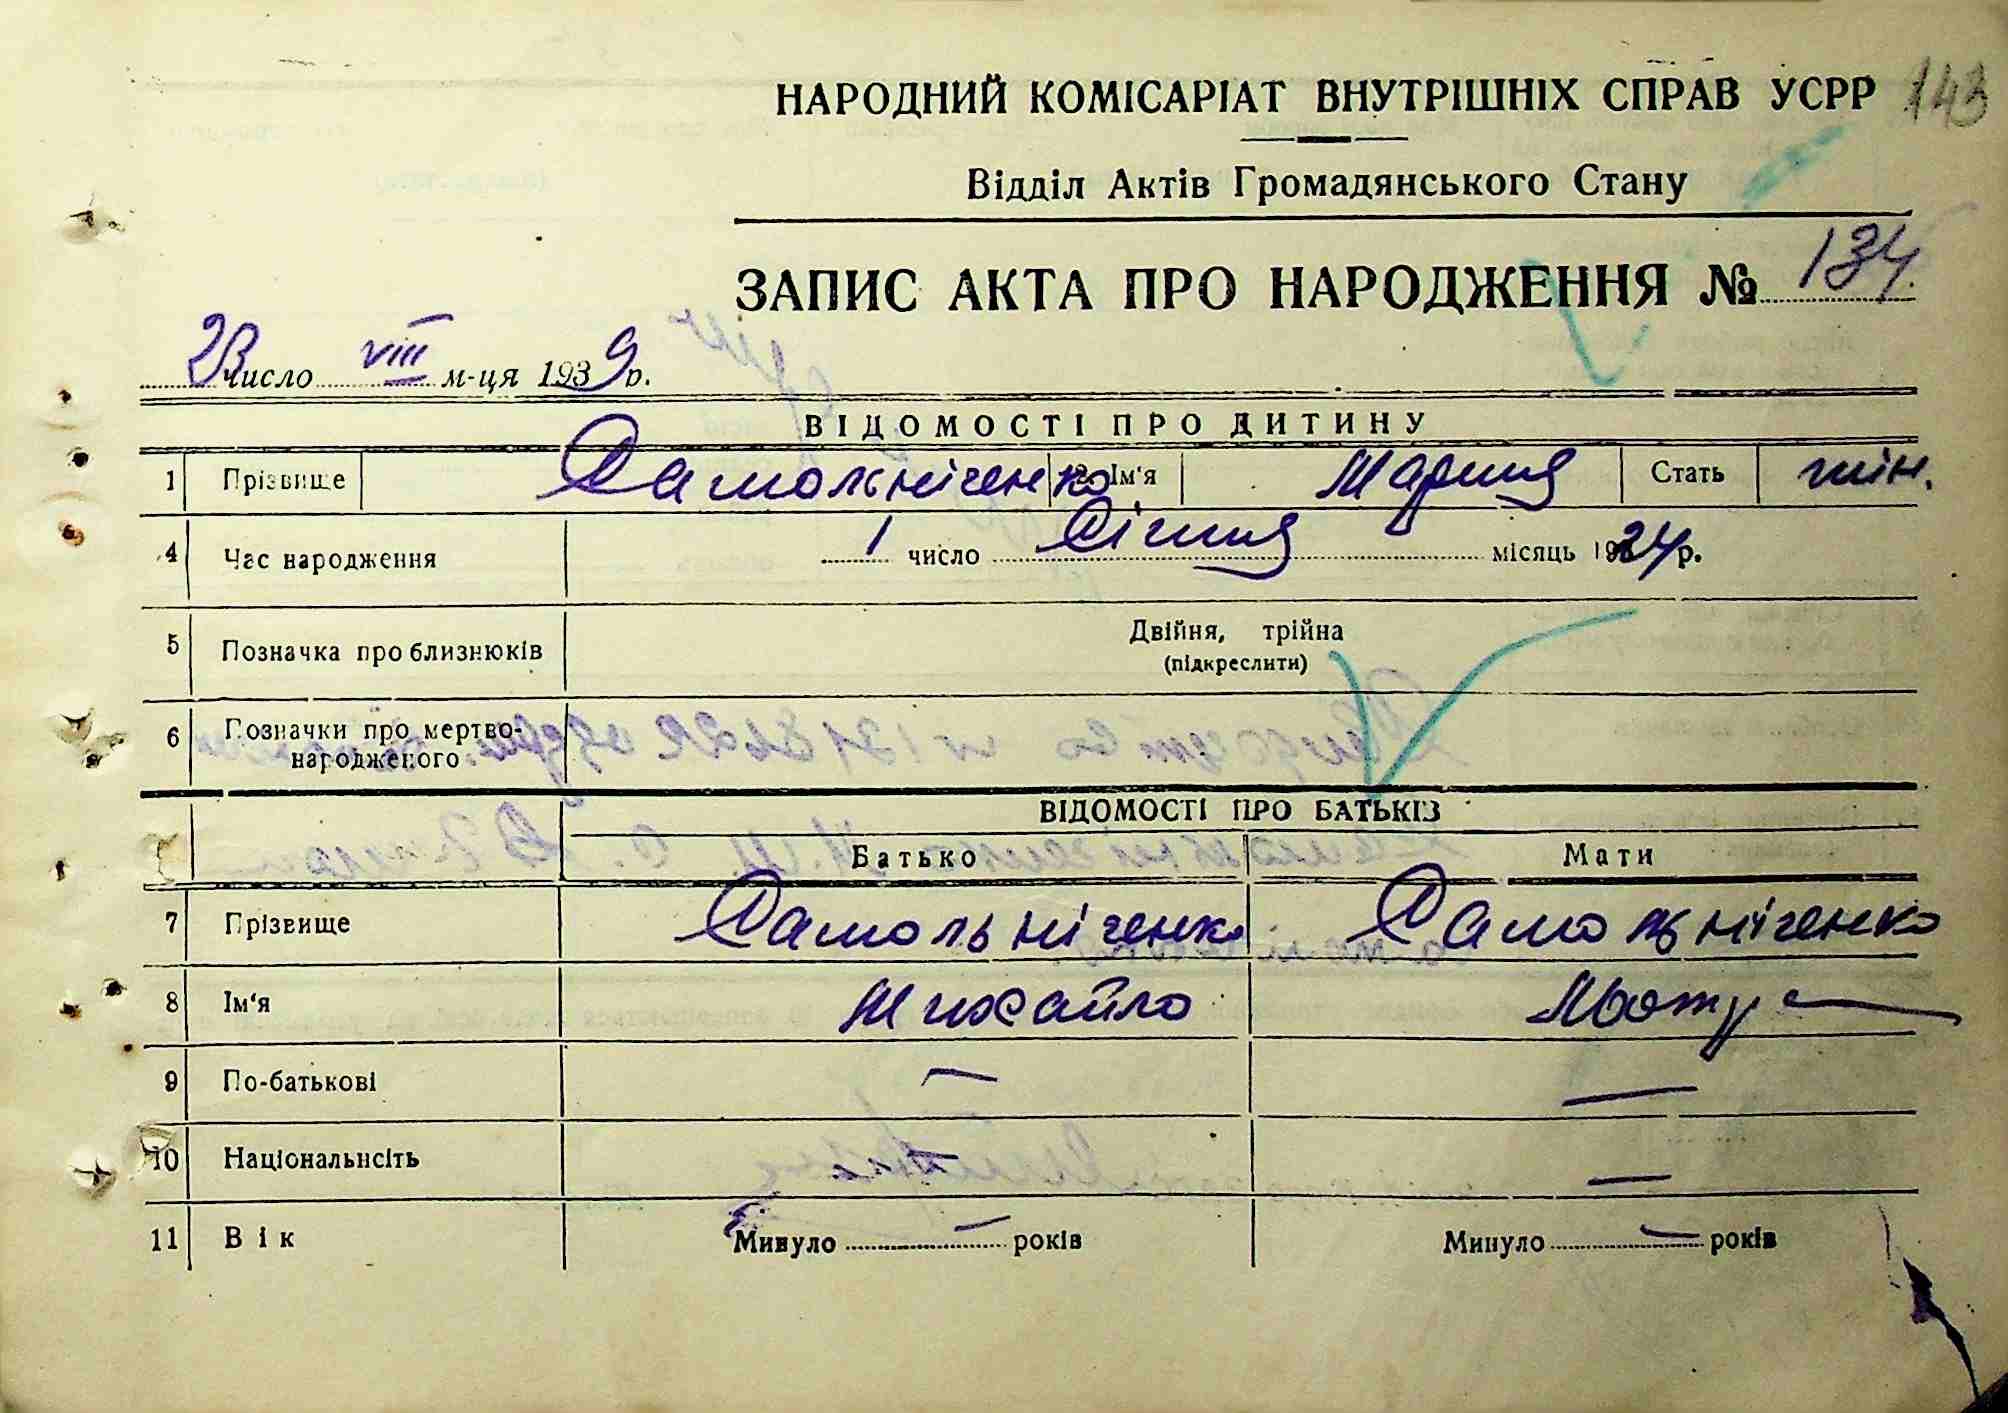 НАРОДНИЙ КОМІСАРІАТ ВНУТРІШНІХ СПРАВ УСРР 143
Відділ Актів Громадянського Стану
ЗАПИС АКТА ПРО НАРОДЖЕННЯ № 134.
23 число VIII м-ця 1939 р.
ВІДОМОСТІ ПРО ДИТИНУ
1 Прізвище Самольніченко 2 Ім'я Мария Стать жін.
4 Час народження 1 число Січня місяць 1924 р.
5 Позначка про близнюків Двійня, трійна
(підкреслити)
6 Позначки про мертво-
народженого
ВІДОМОСТІ ПРО БАТЬКІВ
Батько Мати
7 Прізвище Самольніченко Самольніченко
8 Ім'я Михайло
9 По-батькові — —
10 Національнсіть —
11 Вік Минуло — років Минуло — років